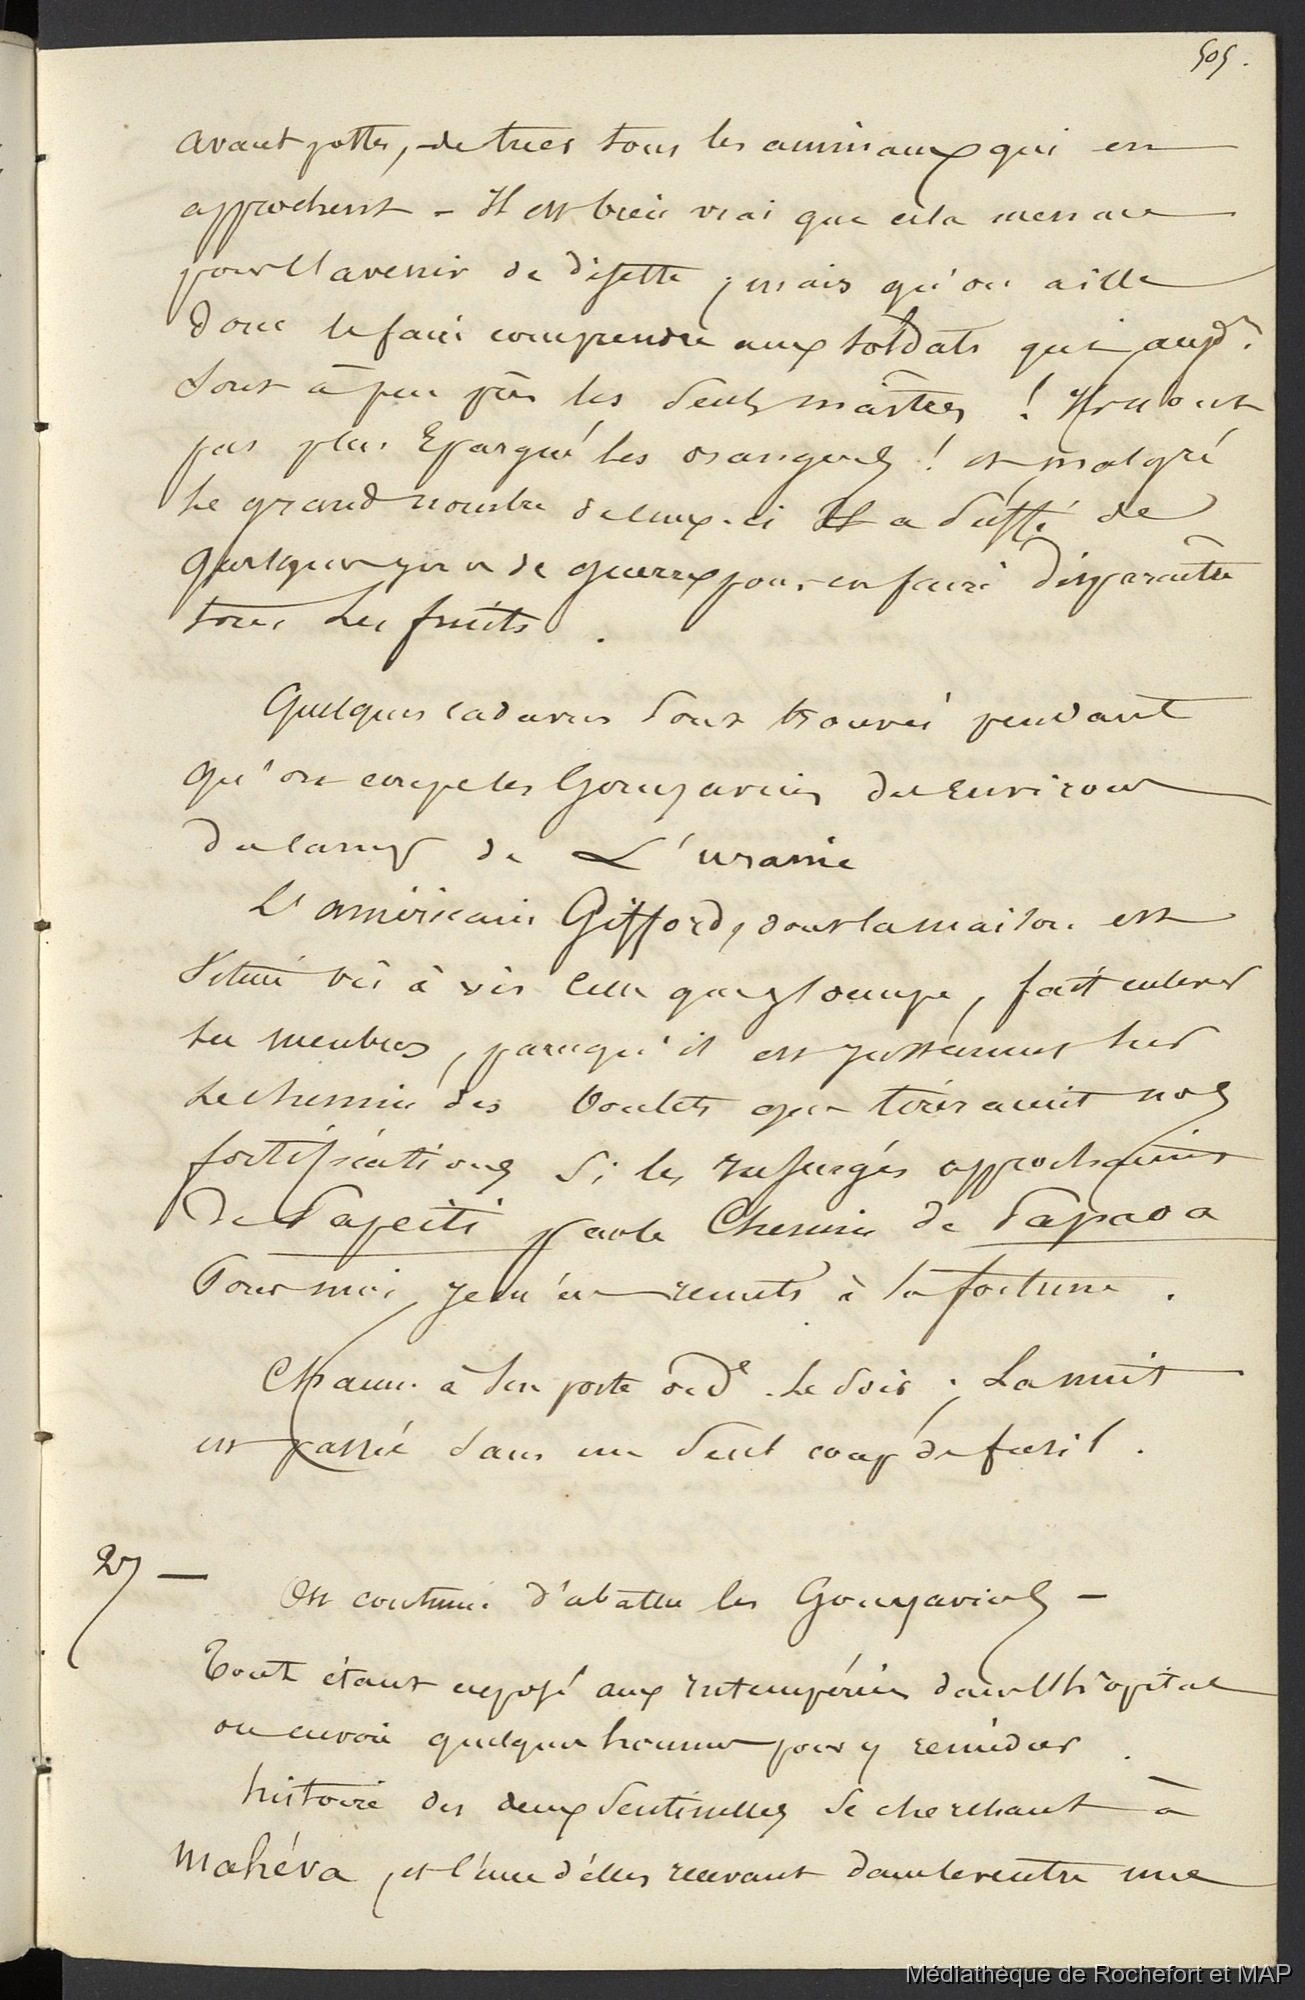 505.
avant postes, de tuer tous les animaux qui en
approchent - Il est bien vrai que cela menace
pour l'avenir de disette ; mais qu'on aille
donc le faire comprendre aux soldats qui aujd.
sont à peu près les seuls maîtres ! Ils n'ont
pas plus épargné les orangers ! et malgré
le grand nombre de ceux-ci il a suffi de
quelques jours de guerre pour en faire disparaître
tous les fruits .
Quelques cadavres sont trouvés pendant
qu'on coupe les Gouyaviers des environs
du camp de L'uranie
L'américain Gifford, dont la maison est
située vis à vis celle que j'occupe, fait enlever
ses meubles, parcequ'il est justement sur
le chemin des boulets que tireraient nos
fortifications si les insurgés approchaient
de Papeiti par le Chemin de Papaoa
Pour moi, je m'en remets à la fortune .
Chacun à son poste ord.e le soir ; La nuit
est passée sans un seul coup de fusil .
27 —
On continue d'abattre les Gouyaviers —
Tout étant exposé aux intempéries dans l'hôpital
on envoie quelques hommes pour y remédier .
histoire des deux sentinelles se cherchant à
Mahéva, et l'une d'elles recevant dans le ventre une
Médiathèque de Rochefort et MAP